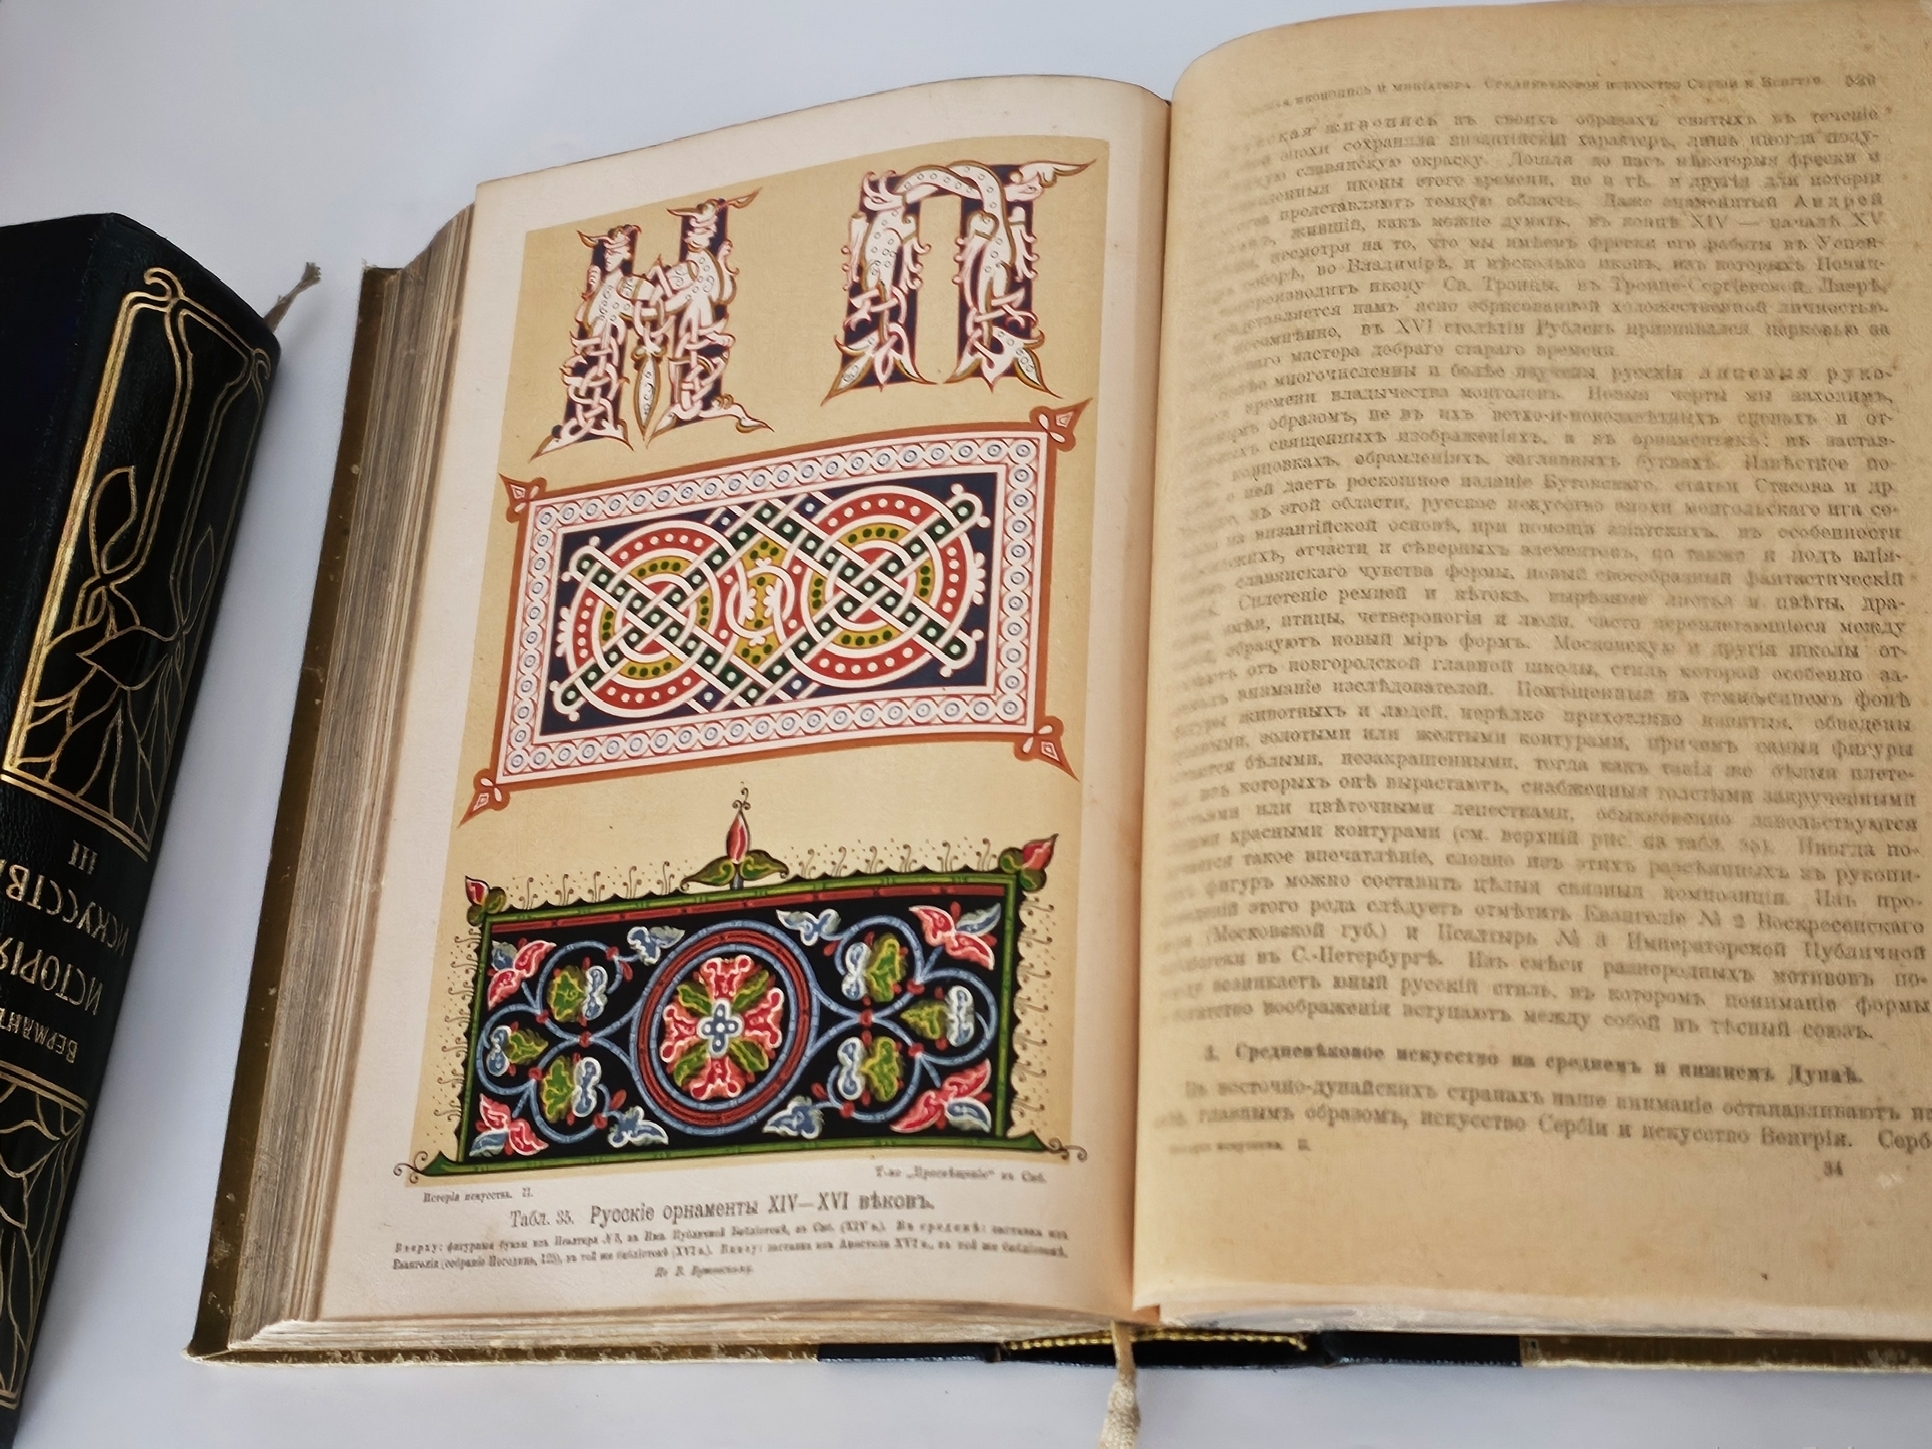 III
ИСКУССТВ
ИСТОРІЯ
ВЕРМАНЪ
Н П
Т-во „Просвѣщеніе“ въ Спб.
Исторія искусства. II.
Табл. 35. Русскіе орнаменты XIV—XVI вѣковъ.
Вверху: фигурныя буквы изъ Псалтеря №3, въ Имп. Публичной Библіотекѣ, въ Спб. (XIV в.). Въ срединѣ: заставка изъ
Евангелія (собраніе Погодина, 125), въ той же библіотекѣ (XVI в.). Внизу: заставка изъ Апостола XVI в., въ той же библіотекѣ.
По В. Бутовскому.
иконопись и миніатюра. Средневѣковое искусство Сербіи и Венгріи. 529
живопись въ своихъ образахъ святыхъ въ теченіе
эпохи сохранила византійскій характеръ, лишь иногда полу-
славянскую окраску. Дошли до насъ нѣкоторыя фрески и
иконы этого времени, но и тѣ, и другія для исторіи
представляютъ темную область. Даже знаменитый Андрей
жившій, какъ можно думать, въ концѣ XIV — началѣ XV
несмотря на то, что мы имѣемъ фрески его работы въ Успен-
соборѣ, во Владимірѣ, и нѣсколько иконъ, изъ которыхъ Новиц-
икону Св. Троицы, въ Троице-Сергіевской Лаврѣ,
намъ ясно обрисованной художественной личностью.
въ XVI столѣтіи Рублевъ признавался церковью за
мастера добраго стараго времени.
многочисленны и болѣе изучены русскія лицевыя руко-
времени владычества монголовъ. Новыя черты мы находимъ,
образомъ, не въ ихъ ветхо-и-новозавѣтныхъ сценахъ и от-
священныхъ изображеніяхъ, а въ орнаментикѣ: въ застав-
концовкахъ, обрамленіяхъ, заглавныхъ буквахъ. Извѣстное по-
о ней даетъ роскошное изданіе Бутовскаго, статьи Стасова и др.
въ этой области, русское искусство эпохи монгольскаго ига со-
на византійской основѣ, при помощи азіатскихъ, въ особенности
отчасти и сѣверныхъ элементовъ, но также и подъ влія-
славянскаго чувства формы, новый своеобразный фантастическій
Сплетеніе ремней и вѣтокъ, вырѣзные листья и цвѣты, дра-
змѣи, птицы, четвероногія и люди, часто переплетающіеся между
образуютъ новый міръ формъ. Московскую и другія школы от-
отъ новгородской главной школы, стиль которой особенно за-
вниманіе изслѣдователей. Помѣщенныя на темно-синемъ фонѣ
фигуры животныхъ и людей, нерѣдко прихотливо извитыя, обведены
золотыми или желтыми контурами, причемъ самыя фигуры
бѣлыми, незакрашенными, тогда какъ такія же бѣлыя плете-
изъ которыхъ онѣ вырастаютъ, снабженныя толстыми закрученными
или цвѣточными лепестками, обыкновенно довольствуются
красными контурами (см. верхній рис. на табл. 35). Иногда по-
такое впечатлѣніе, словно изъ этихъ разсѣянныхъ въ рукопи-
фигуръ можно составить цѣлыя связныя композиціи. Изъ про-
этого рода слѣдуетъ отмѣтить Евангеліе № 2 Воскресенскаго
(Московской губ.) и Псалтырь № 3 Императорской Публичной
въ С.-Петербургѣ. Изъ смѣси разнородныхъ мотивовъ по-
возникаетъ юный русскій стиль, въ которомъ пониманіе формы
воображенія вступаютъ между собой въ тѣсный союзъ.
4. Средневѣковое искусство на среднемъ и нижнемъ Дунаѣ.
Въ восточно-дунайскихъ странахъ наше вниманіе останавливаютъ на
главнымъ образомъ, искусство Сербіи и искусство Венгріи. Серб
искусства. II.
34